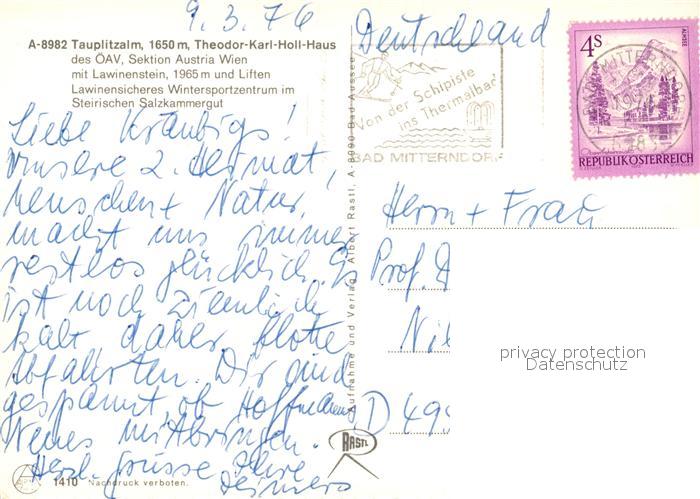 9.3.76
A-8982 Tauplitzalm, 1650 m, Theodor-Karl-Holl-Haus
des ÖAV, Sektion Austria Wien
mit Lawinenstein, 1965 m und Liften
Lawinensicheres Wintersportzentrum im
Steirischen Salzkammergut
Liebe Kräubigs!
Unsere 2. Heimat,
Menschen + Natur,
macht uns immer
restlos glücklich. Es
ist noch ziemlich
kalt daher flotte
Abfahrten. Wir sind
gespannt ob Hoffmanns
Neues mitbringen.
Herzl. Grüsse Ihre
Reimers
1410 Nachdruck verboten.
Aufnahme und Verlag Albert Rastl, A-8990 Bad Aussee
RASTL
Deutschland
Von der Schipiste
ins Thermalbad
BAD MITTERNDORF
4S
ALMSEE
REPUBLIK ÖSTERREICH
Herrn + Frau
Prof. D
D 49
privacy protection
Datenschutz